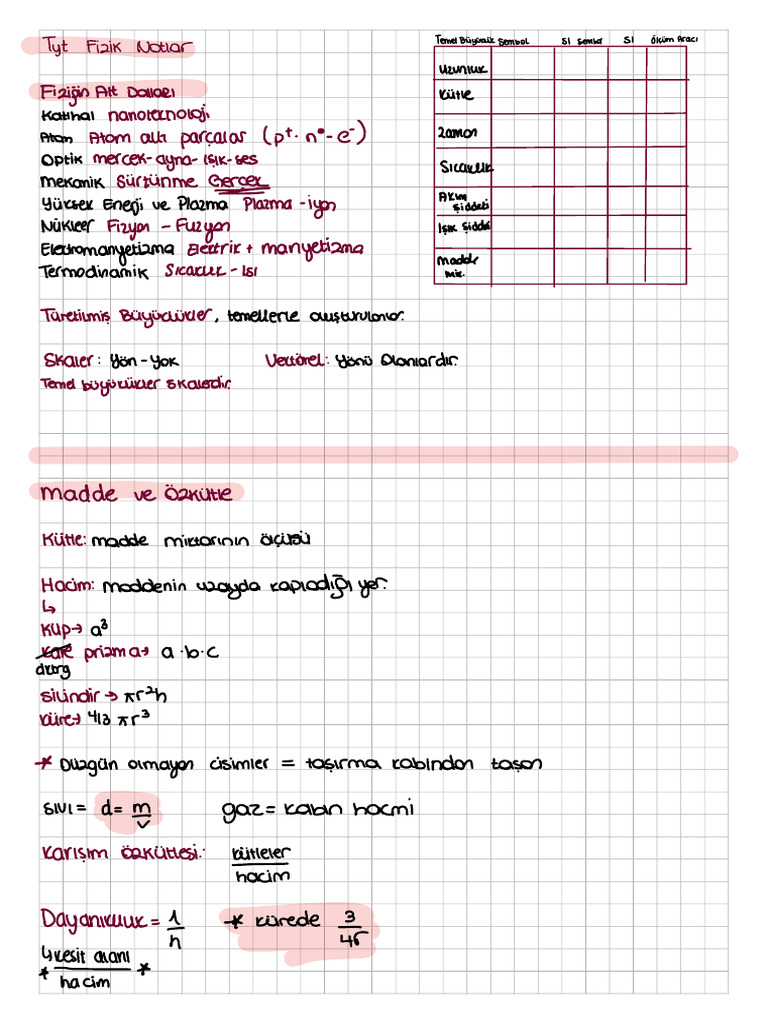 Tyt Fizik Notlar
Fiziğin Alt Dalları
Katıhal nanoteknoloji
Atom Atom altı parçalar (p⁺- n⁰- e⁻)
Optik mercek-ayna-ışık-ses
Mekanik Sürtünme Gerçek
Yüksek Enerji ve Plazma Plazma -iyon
Nükleer Fizyon - Füzyon
Elektromanyetizma Elektrik + manyetizma
Termodinamik Sıcaklık - Isı
Temel Büyüklük Sembol SI Sembol SI Ölçüm Aracı
Uzunluk
Kütle
Zaman
Sıcaklık
Akım
Şiddeti
Işık Şiddet
Madde
Mik.
Türetilmiş Büyüklükler, temellerle oluşturulanlar.
Skaler: Yön-Yok Vektörel: Yönü Olanlardır.
Temel büyüklükler skalerdir.
Madde ve Özkütle
Kütle: madde miktarının ölçüsü
Hacim: maddenin uzayda kapladığı yer.
↳
Küp→ a³
kare prizma→ a·b·c
silindir → πr²h
küre→ 4/3 πr³
* Düzgün olmayan cisimler = taşırma kabından taşan
SIVI = d= m/v gaz = kabın hacmi
Karışım özkütlesi: kütleler/hacim
Dayanıklılık = 1/h * kürede 3/4r
↳kesit alanı
* hacim *